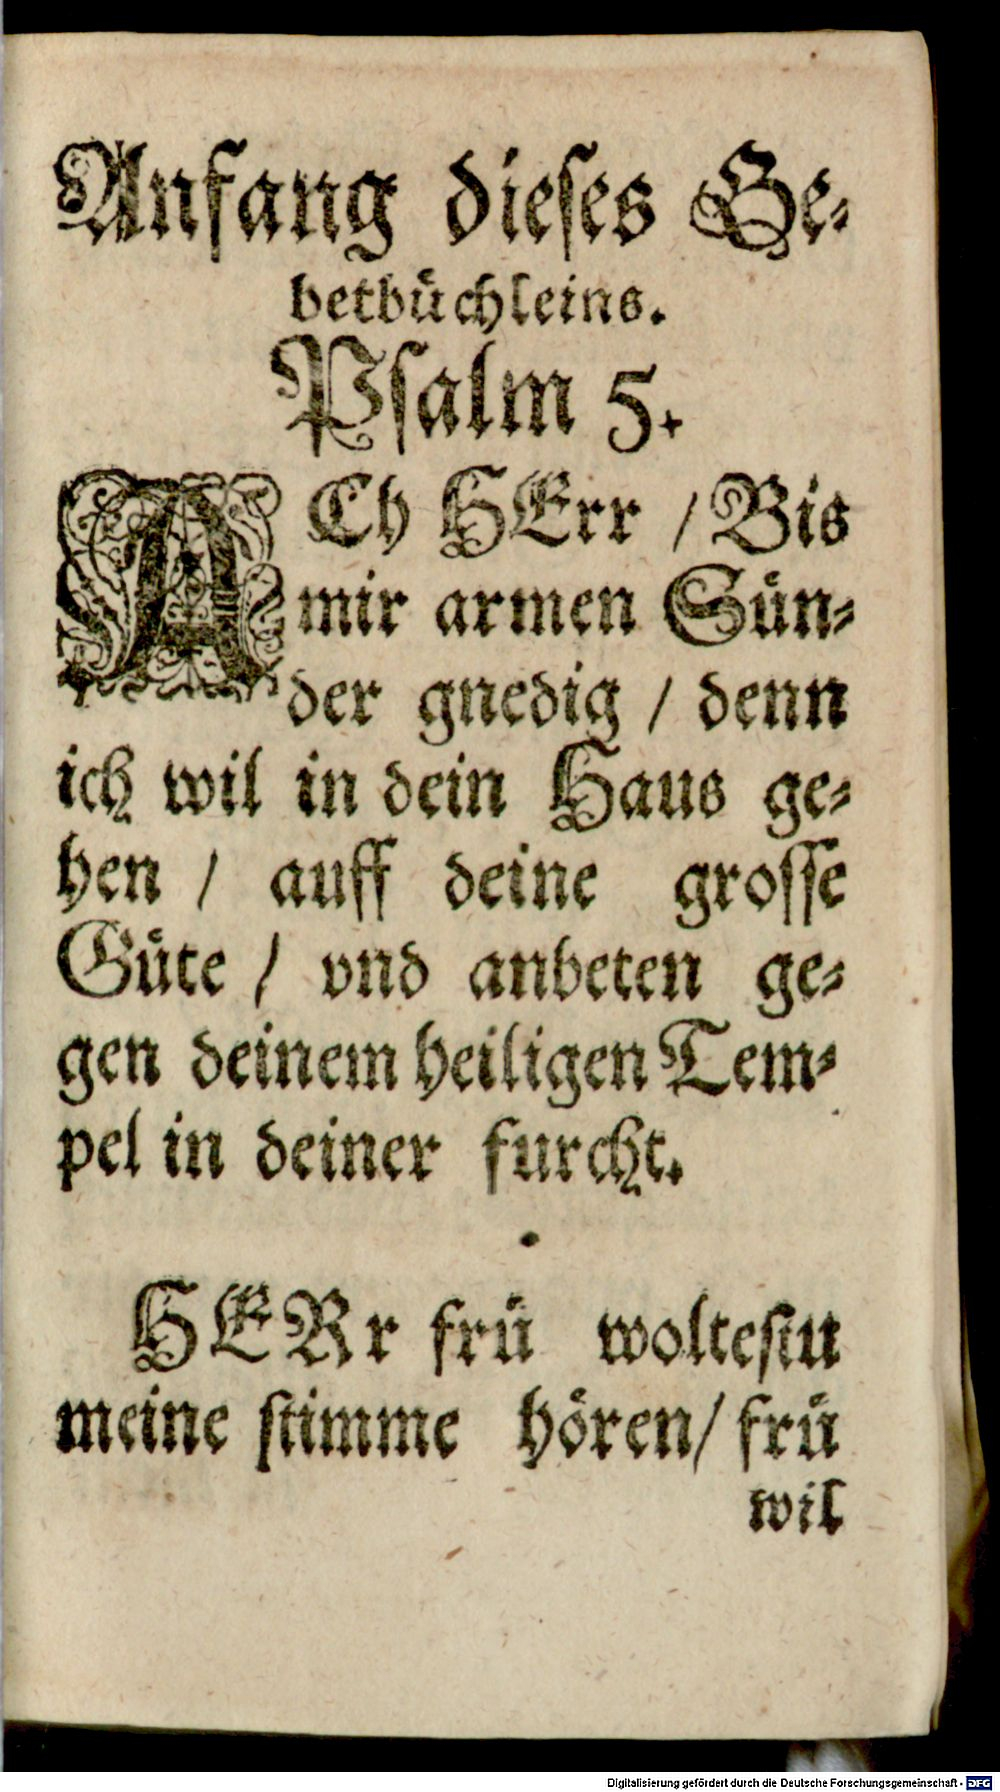 Anfang dieses Ge-
betbüchleins.
Psalm 5.
ACh HErr / Bis
mir armen Sün-
der gnedig / denn
ich wil in dein Haus ge-
hen / auff deine grosse
Güte / vnd anbeten ge-
gen deinem heiligen Tem-
pel in deiner furcht.
HERr frü woltestu
meine stimme hören / frü
wil
Digitalisierung gefördert durch die Deutsche Forschungsgemeinschaft - DFG